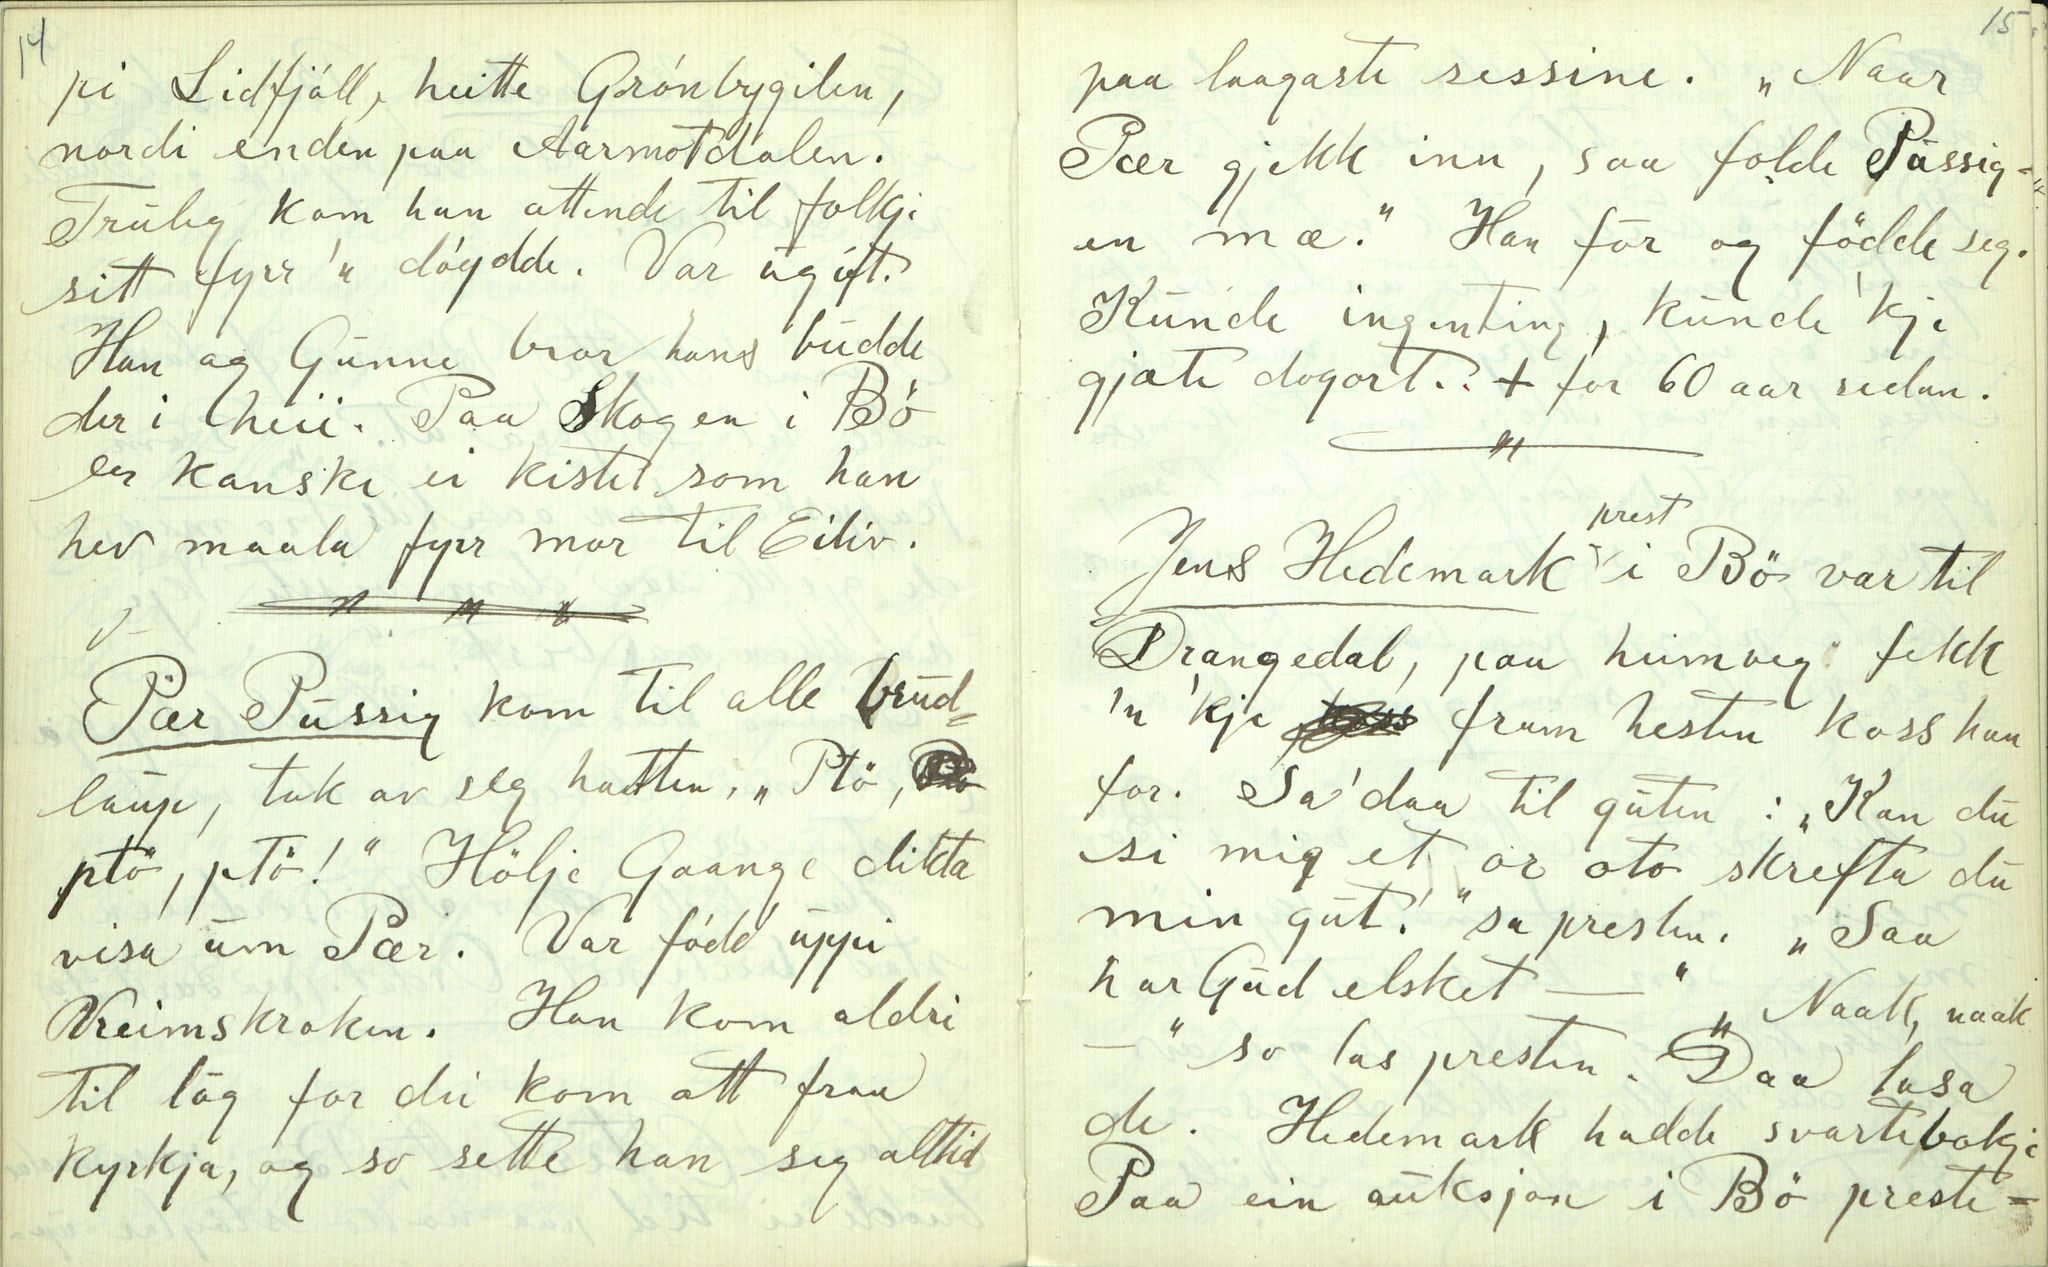 14
pi Lidfjöll, heitte Grónbygilen,
nordi enden paa Aarmotdalen.
Truleg kom han attende til folkje
sitt fyrr 'n döydde. Var ugift.
Han og Gunne bror hans budde
der i heii. Paa Skogen i Bö
er kanske ei kiste som han
hev maala fyrr mor til Eiliv.
Pær Püssig kom til alle brud-
laup, tok av seg hatten, „Ptö,
ptö, ptö!" Hölje Gaange dikta
visa um Pær. Var född uppi
Vreimskroken. Han kom aldri
til lög for dei kom att fraa
kyrkja, og so sette han seg alltid
15
paa laagaste sessine. „Naar
Pær gjekk inn, saa folde Püssig-
en mæ." Han for og födde seg.
Kunde ingenting, kunde 'kje
gjæte dogort. + for 60 aar sidan.
prest
Jens Hedemark i Bö var til
Drangedal, paa heimveg fekk
'n 'kje fram hesten koss han
for. Sa' daa til guten: „Kan du
si mig et or oto skrefta du
min gut!" sa presten. „Saa
har Gud elsket —" „Naak, naak
—" so las presten. „Daa losa
de. Hedemark hadde svarteboki
Paa ein auksjon i Bö preste-